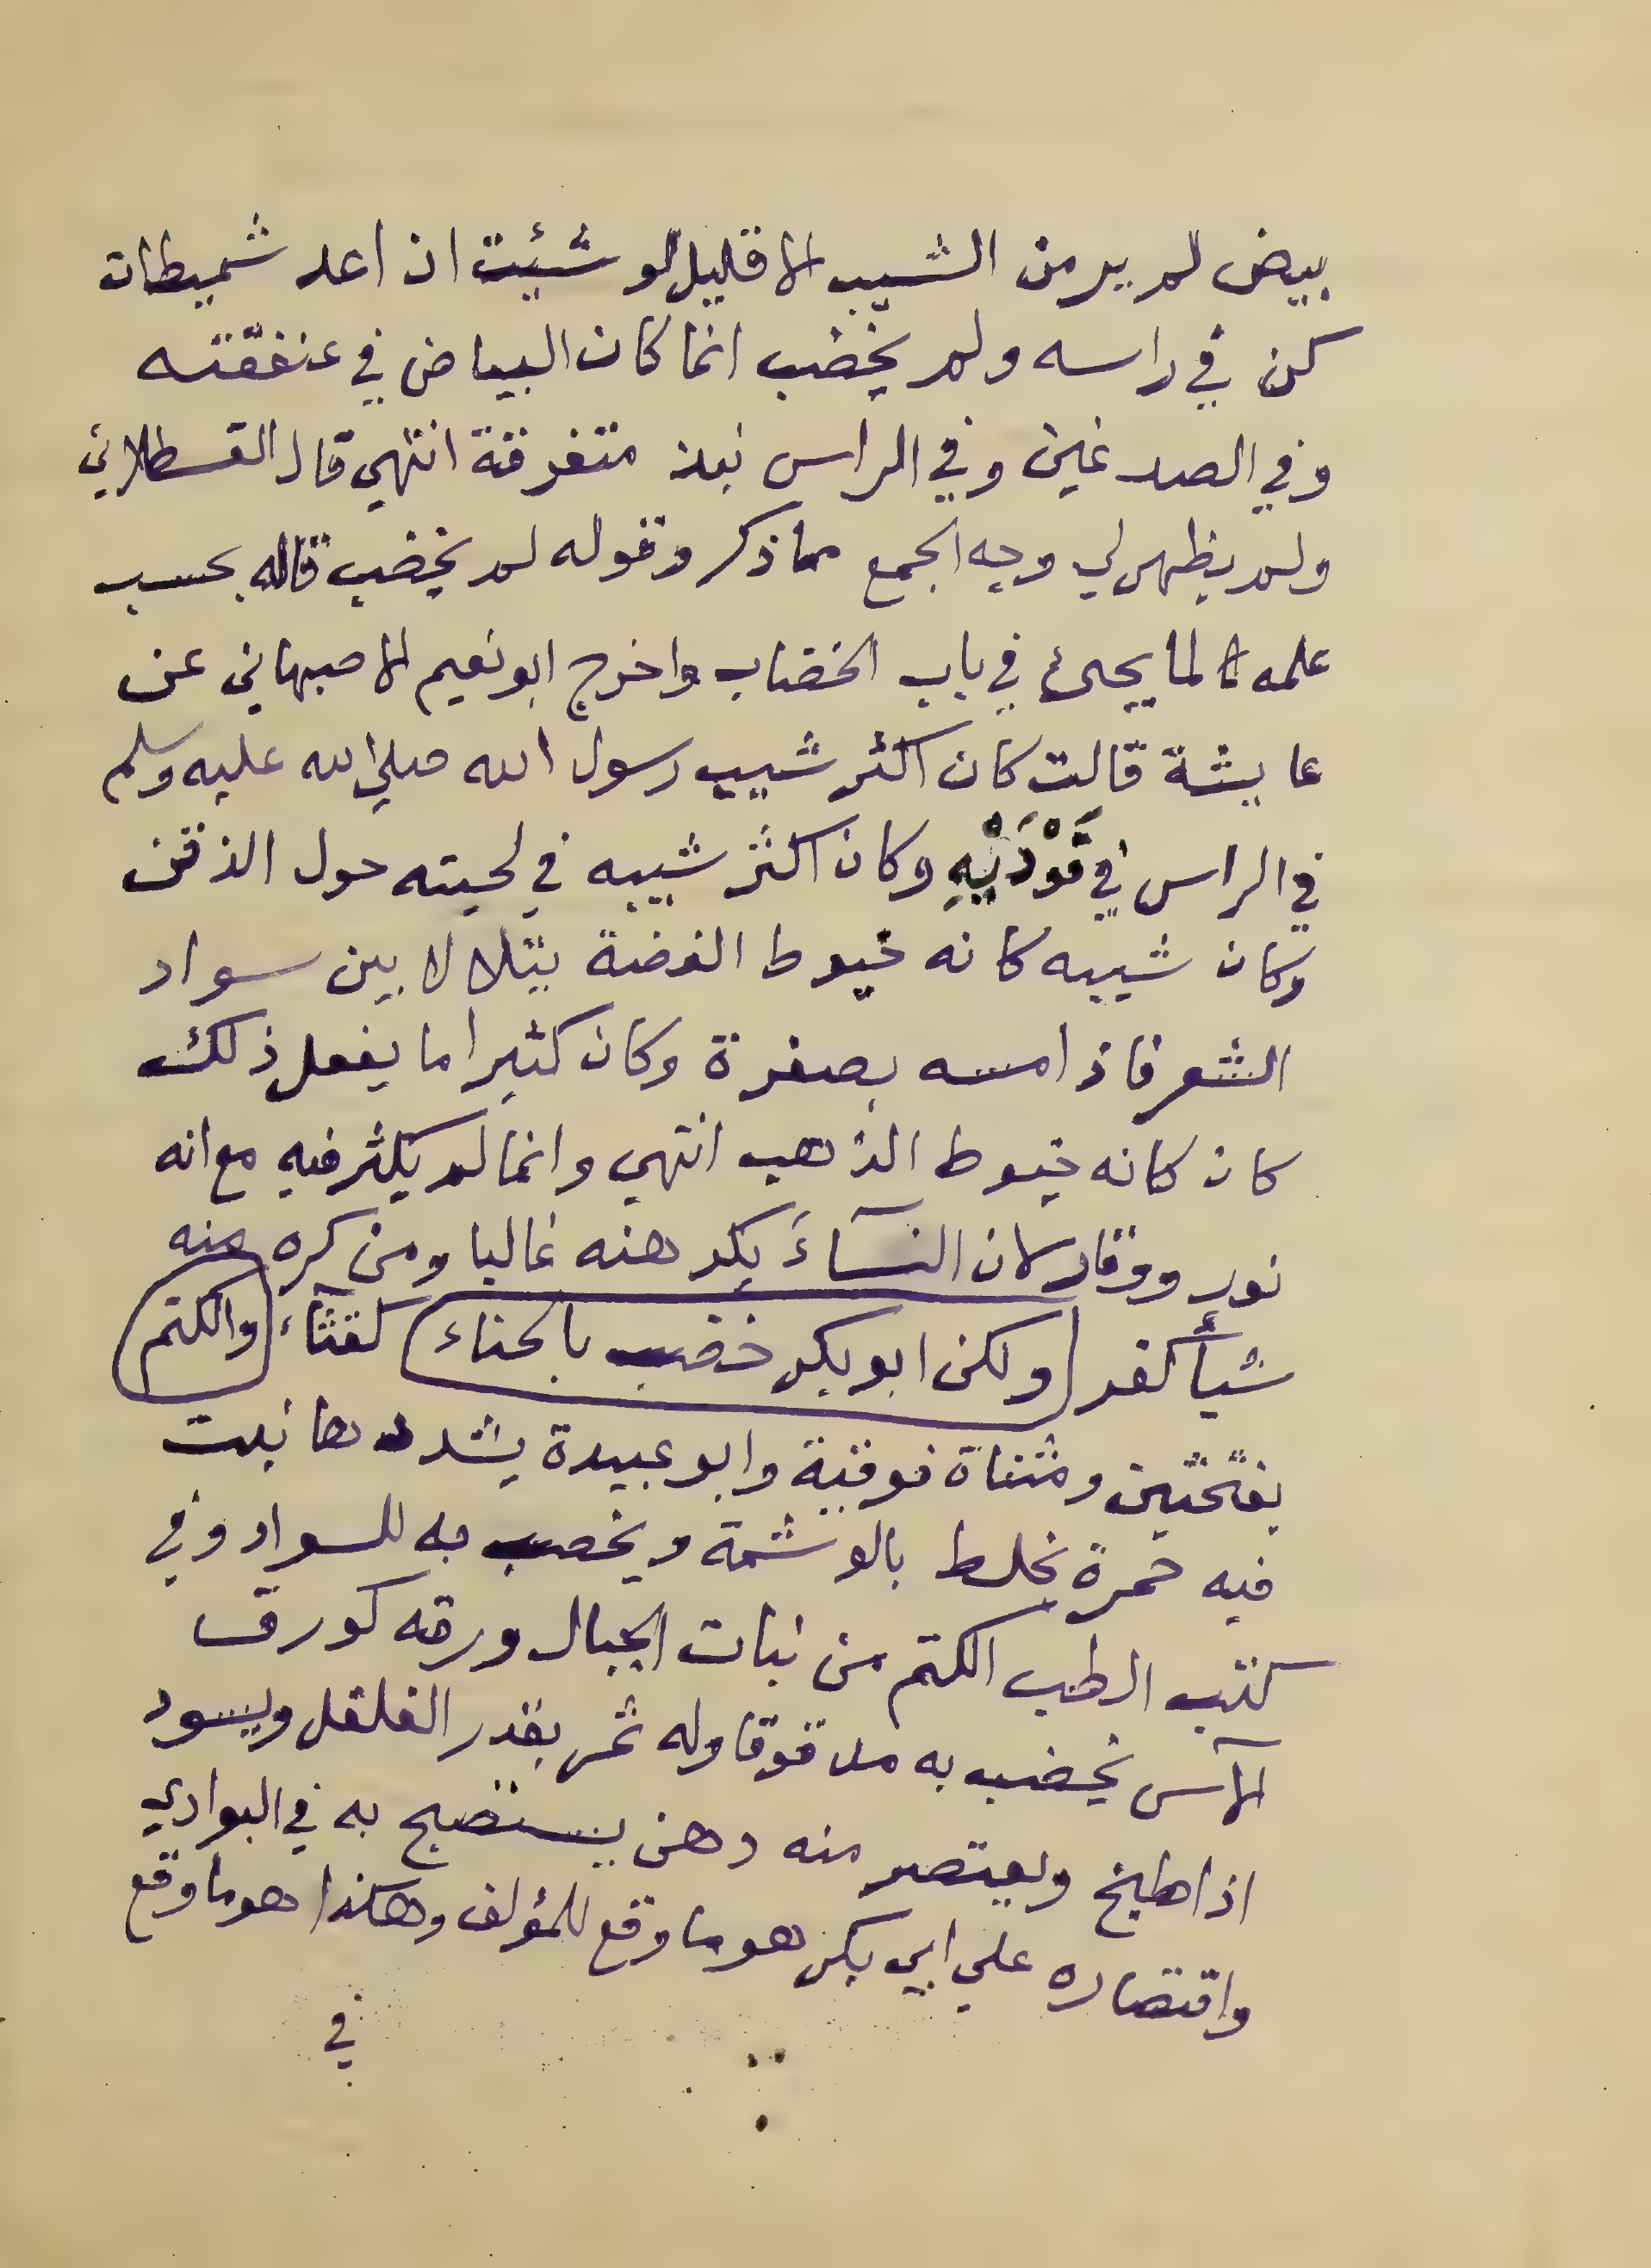 بيض لم ير من الشيب الا قليل لو شئت ان اعد شميطات
كن في راسه ولم يخضب انما كان البياض في عنفقته
وفي الصدغين وفي الراس نبذ متفرقة انتهي قال القسطلاني
ولم يظهر لي وجه الجمع مما ذكر وقوله لم يخضب قاله بحسب
علمه لما يجئ في باب الخضاب واخرج ابو نعيم الاصبهاني عن
عايشة قالت كان اكثر شيب رسول الله صلي الله عليه وسلم
في الراس في فَوْدَيْهِ وكان اكثر شيبه في لحيته حول الذقن
وكان شيبه كانه خيوط الفضة يتلالا بين سواد
الشعر فاذا مسه بصفرة وكان كثيرا ما يفعل ذلك
كان كانه خيوط الذهب انتهي وانما لم يكثر فيه مع انه
نور ووقار لان النسآءَ يكرهنه غالبا ومن كره منه
شيأ كفر ولكن ابو بكر خضب بالحناء كقثآء والكتم
بفتحتين ومثناة فوقية وابو عبيدة يشددها نبت
فيه حمرة يخلط بالوشمة ويخصب به للسواد وفي
كتب الطب الكتم من نبات الجبال ورقه كورق
الآس يخضب به مدقوقا وله ثمر بقدر الفلفل ويسود
اذا طبخ ويعتصر منه دهن يستصبح به في البوادي
واقتصاره علي ابي بكر هو ما وقع للمؤلف وهكذا هو ما وقع
في